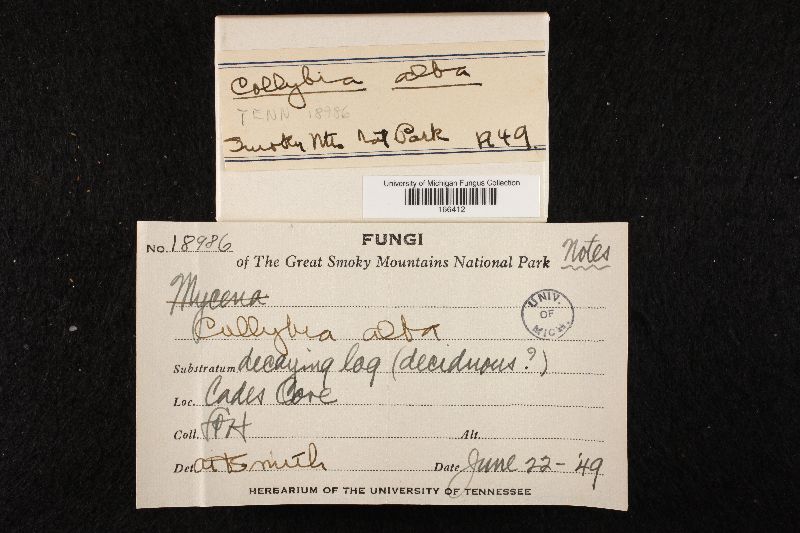 Collybia alba
TENN 18986
Smoky Mts Nat Park 1949
University of Michigan Fungus Collection
166412
No. 18986 FUNGI Notes
of The Great Smoky Mountains National Park
Mycena
UNIV. OF MICH.
Collybia alba
Substratum decaying log (deciduous?)
Loc. Cades Cove
Coll. Alt.
Det. AH Smith Date June 22-'49
HERBARIUM OF THE UNIVERSITY OF TENNESSEE